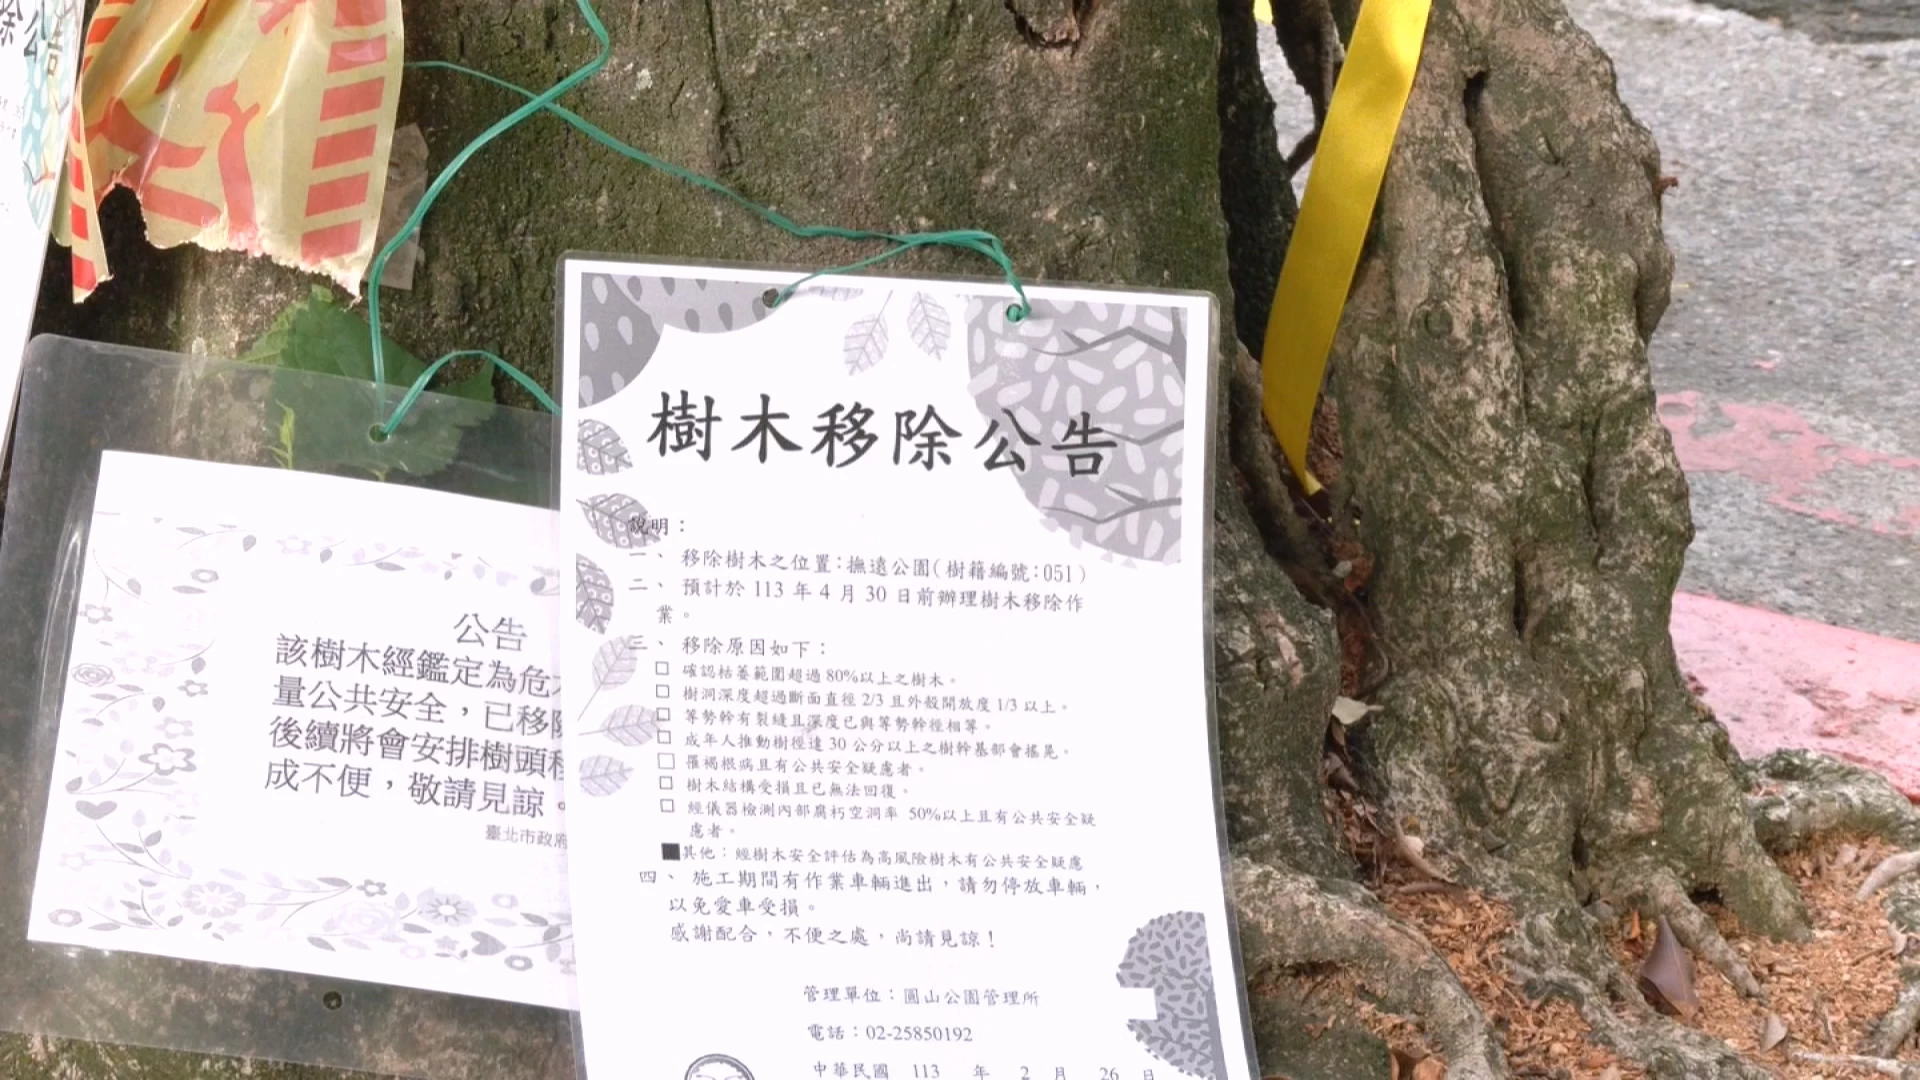 除公告
樹木移除公告
說明：
一、 移除樹木之位置：撫遠公園（樹籍編號：051）
二、 預計於 113 年 4 月 30 日前辦理樹木移除作
業。
三、 移除原因如下：
□ 確認枯萎範圍超過 80%以上之樹木。
□ 樹洞深度超過斷面直徑 2/3 且外殼開放度 1/3 以上。
□ 等勢幹有裂縫且深度已與等勢幹徑相等。
□ 成年人推動樹徑達 30 公分以上之樹幹基部會搖晃。
□ 罹褐根病且有公共安全疑慮者。
□ 樹木結構受損且已無法回復。
□ 經儀器檢測內部腐朽空洞率 50%以上且有公共安全疑
慮者。
■其他：經樹木安全評估為高風險樹木有公共安全疑慮
四、 施工期間有作業車輛進出，請勿停放車輛，
以免愛車受損。
感謝配合，不便之處，尚請見諒！
管理單位：圓山公園管理所
電話：02-25850192
中華民國 113 年 2 月 26 日
公告
該樹木經鑑定為危
量公共安全，已移除
後續將會安排樹頭
成不便，敬請見諒。
臺北市政府